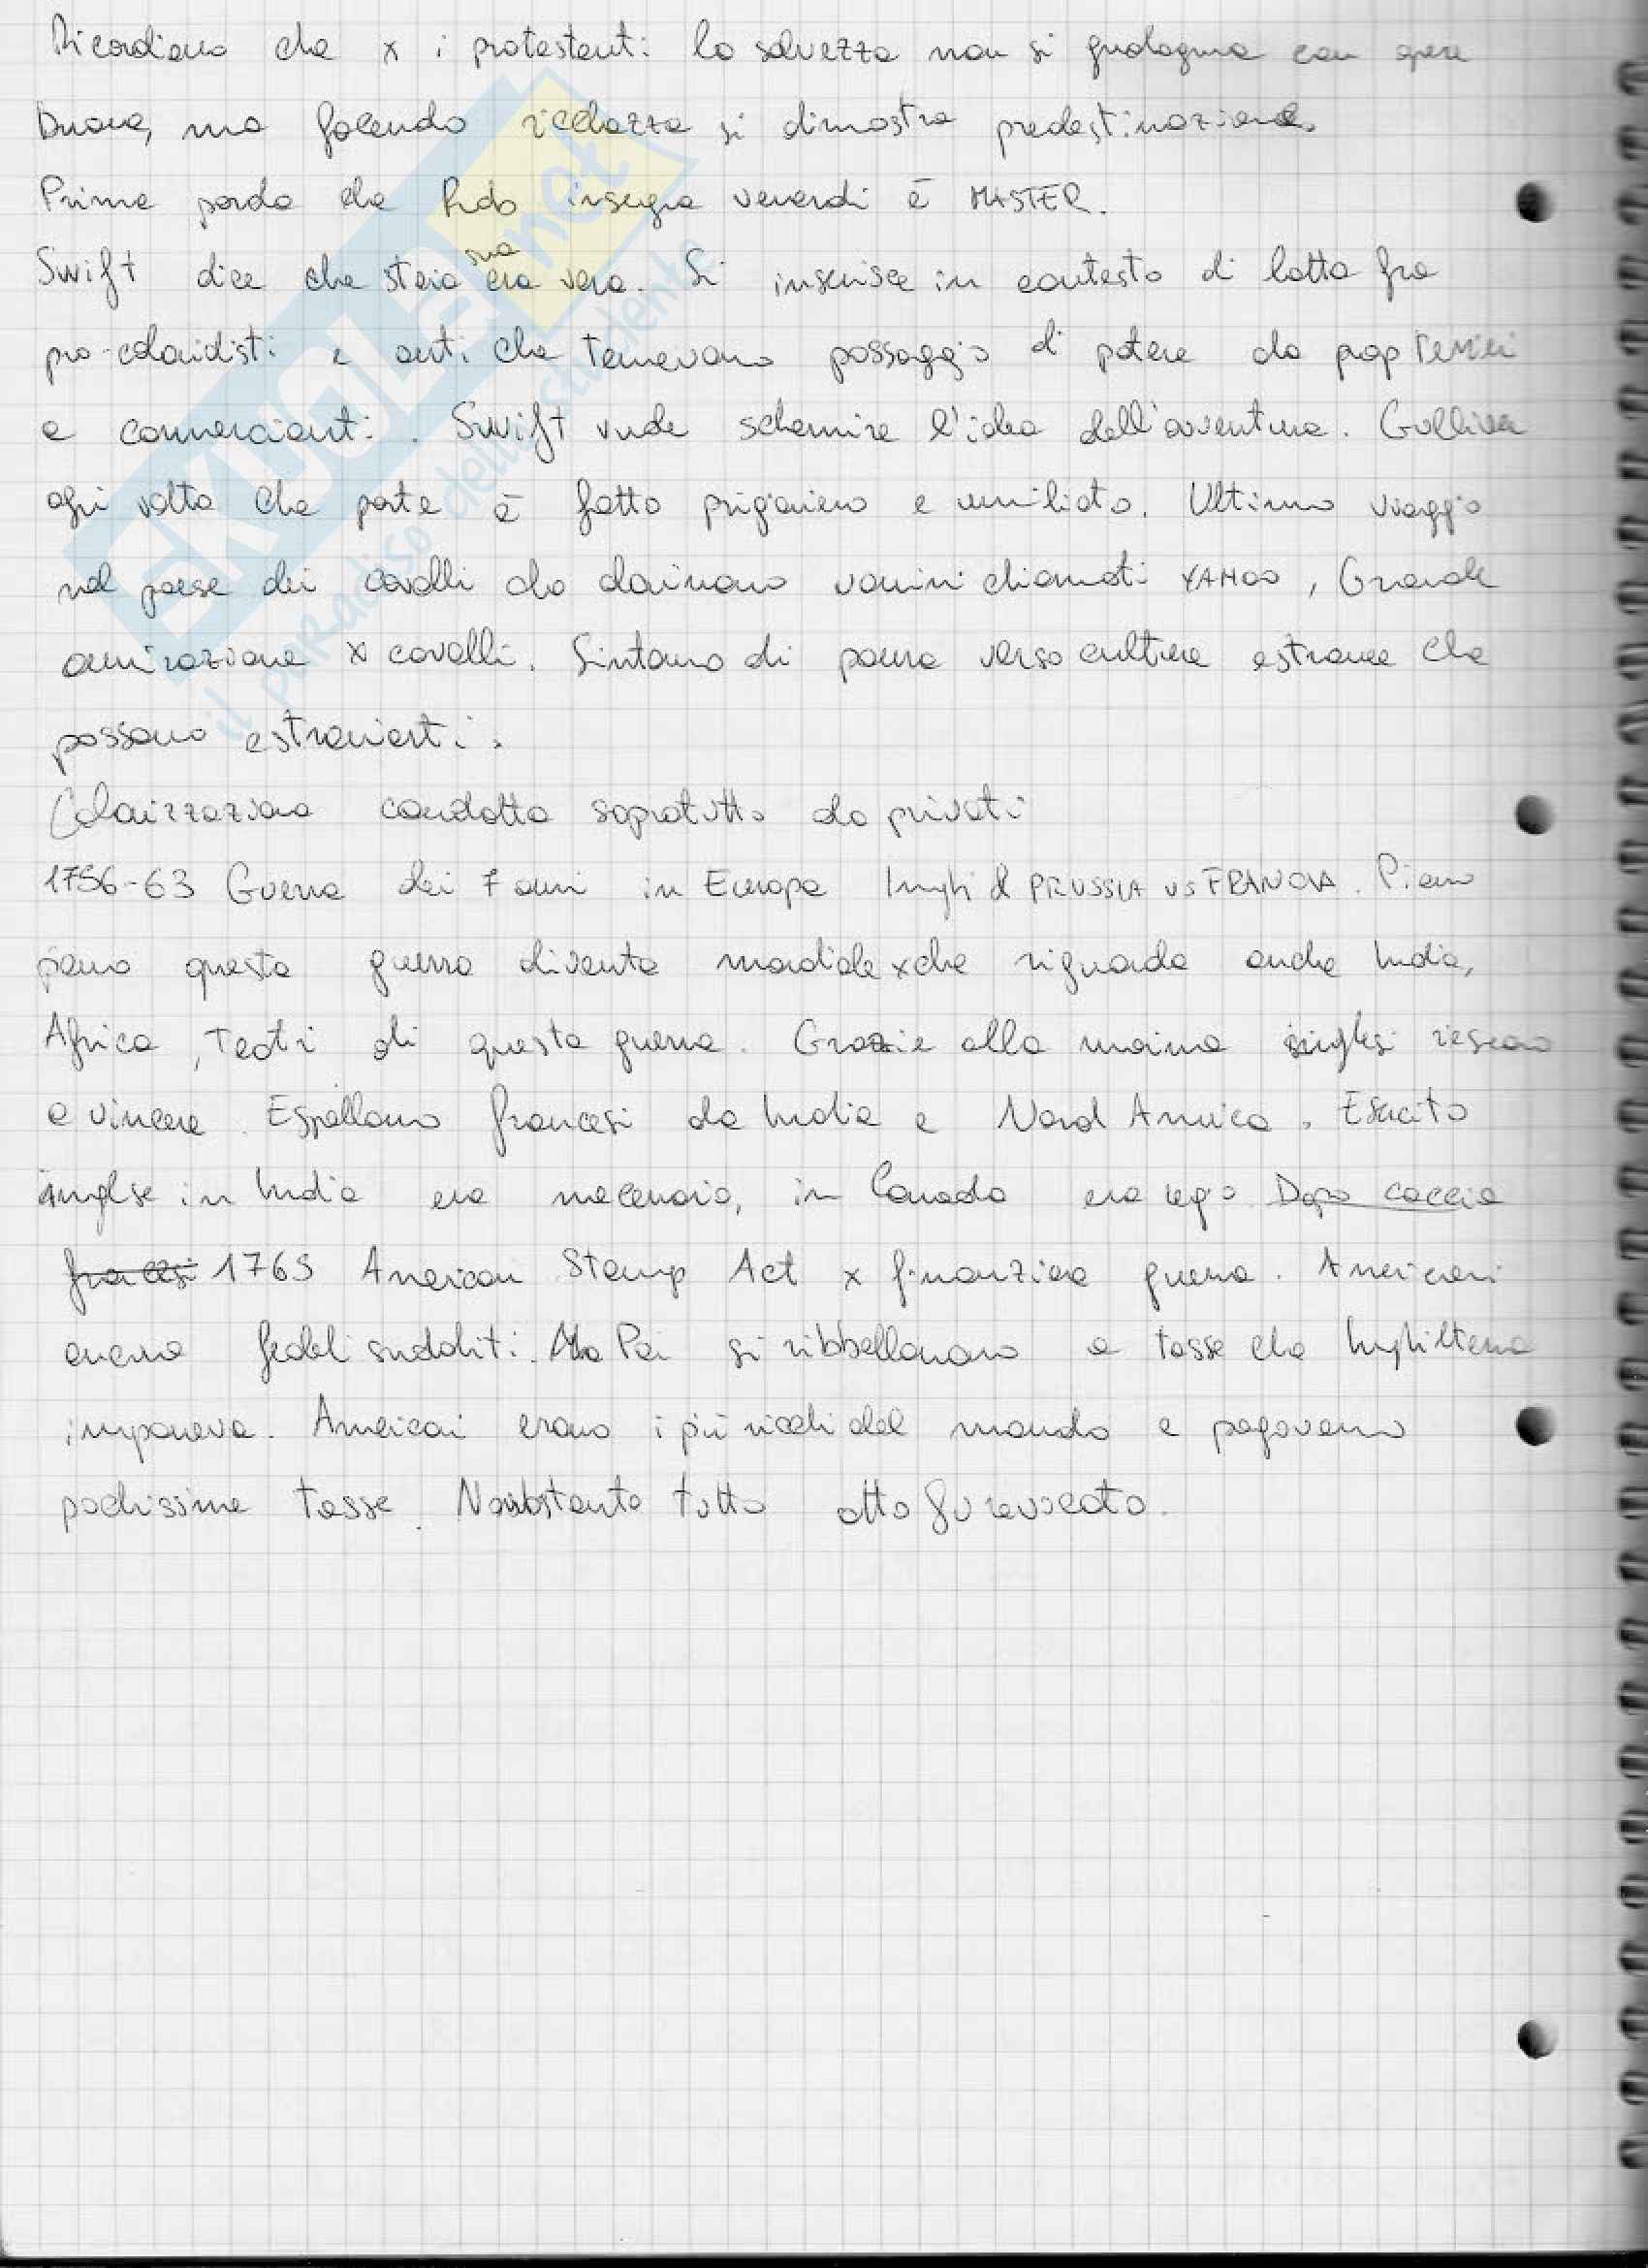 Ricordiamo che x i protestanti la salvezza non si guadagna con opere
buone, ma facendo ricchezza si dimostra predestinazione.
Prima parola che insegna venerdì è MASTER.
Swift dice che storia sua era vera. Si inserisce in contesto di lotta fra
pro-colonialisti e anti che temevano passaggio di potere da prop terrieri
a commercianti. Swift vuole schernire l'idea dell'avventura. Gulliver
ogni volta che parte è fatto prigioniero e umiliato. Ultimo viaggio
nel paese dei cavalli che dominano uomini chiamati YAHOO, Grande
ammirazione x cavalli. Sintomo di paura verso culture estranee che
possono estraniarti.
Colonizzazione condotta sopratutto da privati
1756-63 Guerra dei 7 anni in Europa Ingh & PRUSSIA vs FRANCIA. Piano
piano questa guerra diventa mondiale xche riguarda anche India,
Africa, Teatri di questa guerra. Grazie alla marina inglesi riescono
a vincere. Espellono francesi da India e Nord America. Esercito
inglese in India era mercenario, in Canada era regio. Dopo caccia
francesi 1765 American Stamp Act x finanziare guerra. Americani
erano fedeli sudditi. Poi si ribbellarono a tasse che Inghilterra
imponeva. Americani erano i più ricchi del mondo e pagavano
pochissime tasse. Nonostante tutto atto fu revocato.
EKUOLA.net
il paradiso dello studente